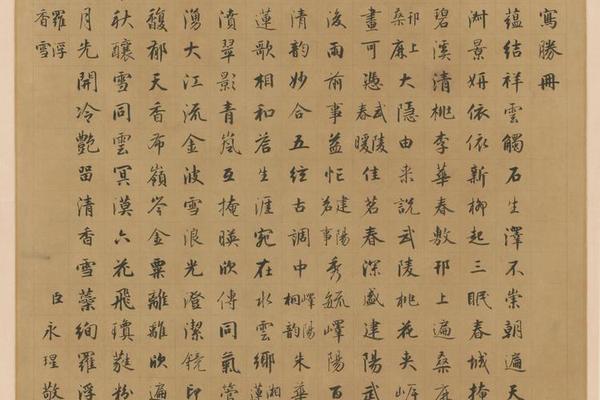 寫勝冊
蘊結祥雲觸石生澤不崇朝遍天
澍景妍依依新柳起三眠春城掩
碧溪清桃李華春敷邗上遍桑麻
邗上桑麻大隱由來說武陵桃花夾岸
畫可憑武陵春暖佳茗春深盛建陽武
浚雨前事益忙建陽茗事秀毓嶧陽百
清韵妙合五絃古調中嶧陽桐韵朱華
蓮歌相和荅生涯宛在水雲鄉湘蓮
濆翠影青嵐互掩暎欣傳同氣管
湧大江流金波雪浪光澄潔鏡印
馥郁天香布嶺岑金粟離離欣遍
秋釀雪同雲冥漠六花飛瓊蕤粉
月先開冷艷留清香雪蘂絢羅浮
羅浮香雪 臣永瑆敬